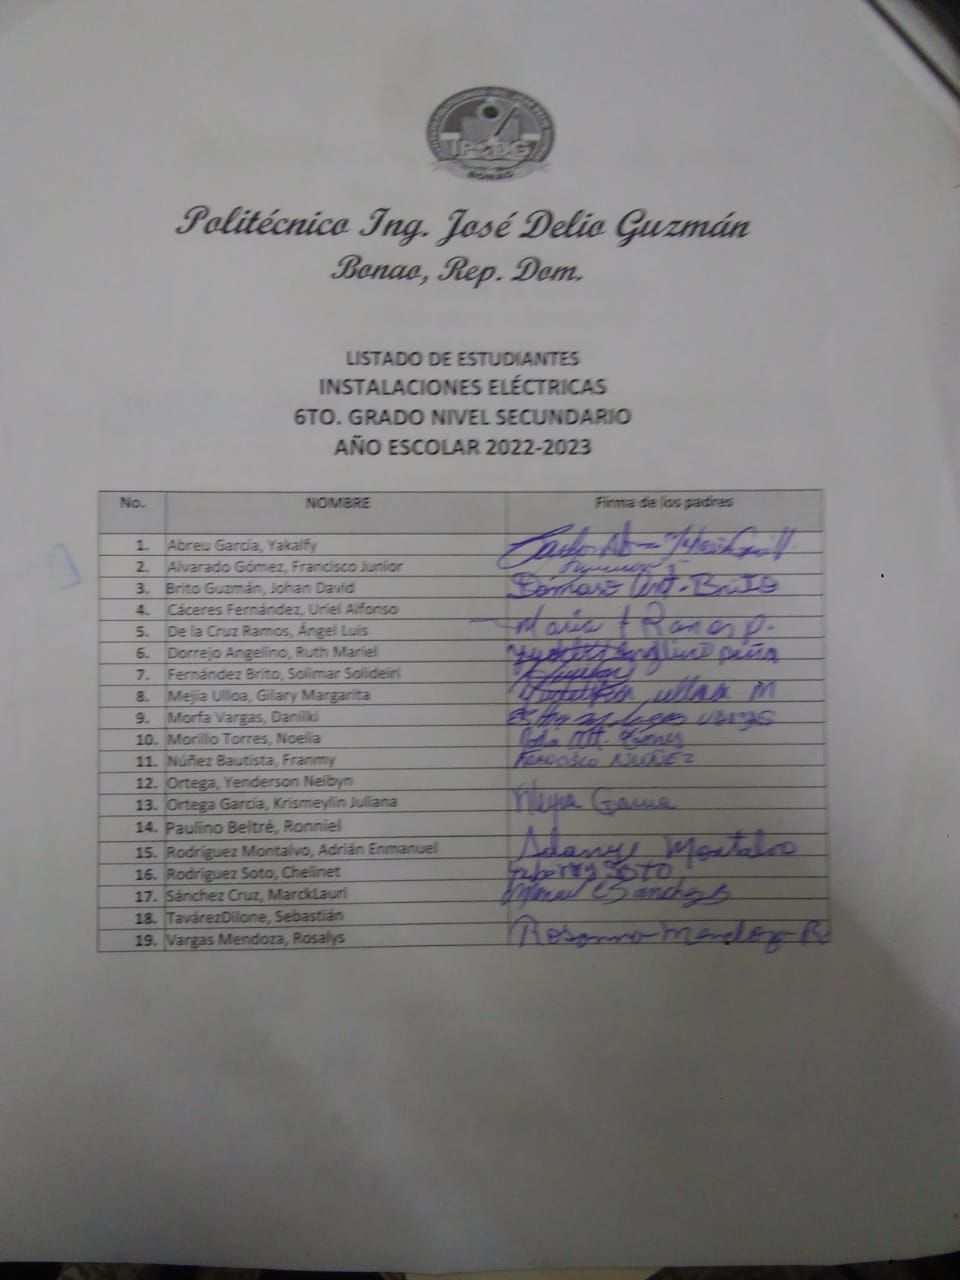 IPJDG
BONAO
Politécnico Ing. José Delio Guzmán
Bonao, Rep. Dom.
LISTADO DE ESTUDIANTES
INSTALACIONES ELÉCTRICAS
6TO. GRADO NIVEL SECUNDARIO
AÑO ESCOLAR 2022-2023
No. NOMBRE Firma de los padres
1. Abreu García, Yakalfy
2. Alvarado Gómez, Francisco Junior
3. Brito Guzmán, Johan David Brito
4. Cáceres Fernández, Uriel Alfonso
5. De la Cruz Ramos, Ángel Luis María Ramos P.
6. Dorrejo Angelino, Ruth Mariel Angelino Peña
7. Fernández Brito, Solimar Solideiri
8. Mejía Ulloa, Gilary Margarita Ulloa M
9. Morfa Vargas, Danilki Vargas
10. Morillo Torres, Noelia
11. Núñez Bautista, Franmy Francisco NUÑEZ
12. Ortega, Yenderson Neibyn
13. Ortega García, Krismeylin Juliana Garcia
14. Paulino Beltré, Ronniel
15. Rodríguez Montalvo, Adrián Enmanuel Montalvo
16. Rodríguez Soto, Chelinet SOTO
17. Sánchez Cruz, MarckLauri Sanchez
18. TavárezDilone, Sebastián
19. Vargas Mendoza, Rosalys Rosanna Mendoza R